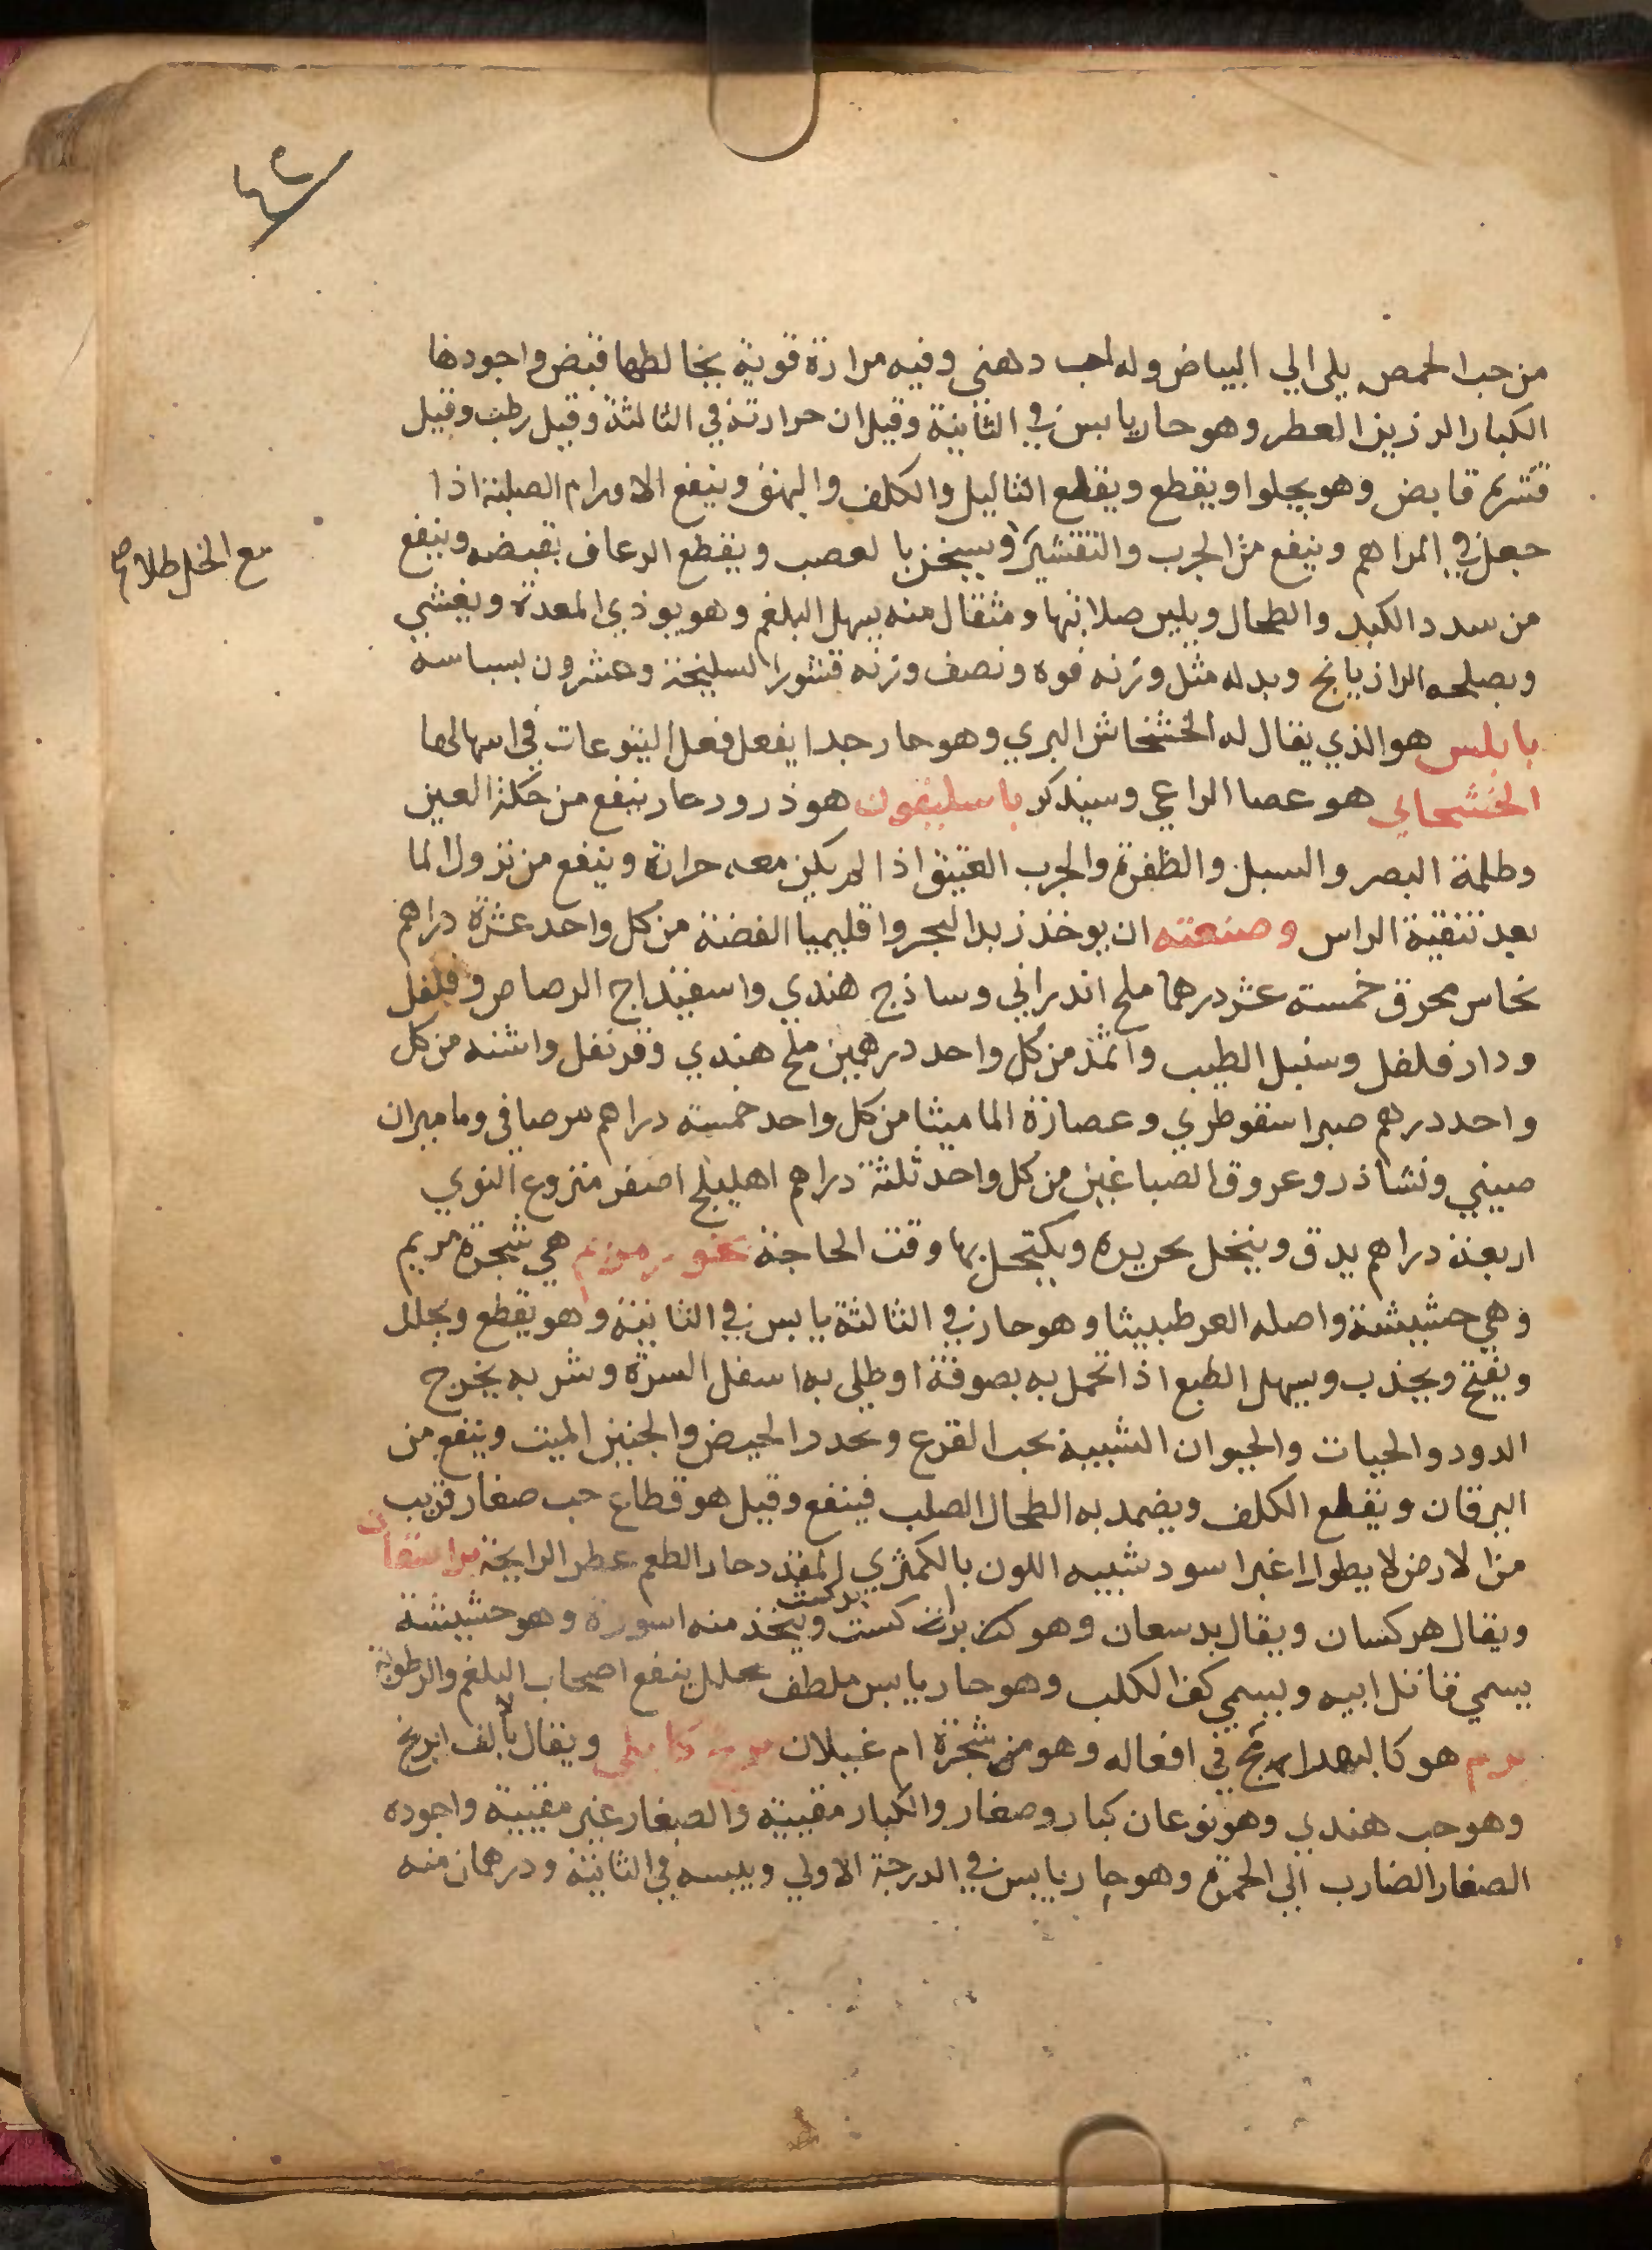 ٤٢
من حب الحمص يلي الي البياض وله لب دهني وفيه مرارة قوية يخالطها قبض واجودها
الكبار الرزين العطر وهو حار يابس في الثانية وقيل ان حرارته في الثالثة وقيل رطب وقيل
قشره قابض وهو يجلوا ويقطع ويقطع الثاليل والكلف والبهق وينفع الاورام الصلبة اذا
جعل في المراهم وينفع من الجرب والتقشير ويسخن بالعصب ويقطع الرعاف بقبضه وينفع
مع الخل طلا صح
من سدد الكبد والطحال ويلين صلابتها ومثقال منه يسهل البلغم وهو يوذي المعدة ويغثي
ويصلحه الرازيانج وبدله مثل وزنه فوه ونصف وزنه قشور السليخة وعشرون بسباسه
بابلس هو الذي يقال له الخشخاش البري وهو حار جدا يفعل فعل اليتوعات في اسهالها
هو عصا الراعي وسيذكر باسليقون هو ذرور حار ينفع من حكة العين
وظلمة البصر والسبل والظفرة والجرب العتيق اذا لم يكن معه حرارة وينفع من نزول الما
بعد تنقية الراس وصنعته ان يوخذ زبد البحر واقليميا الفضة من كل واحد عشرة دراهم
نحاس محرق خمسة عشر درهما ملح اندراني وساذج هندي واسفيذاج الرصاص وفلفل
ودار فلفل وسنبل الطيب واثمذ من كل واحد درهمين ملح هندي وقرنفل واشنه من كل
واحد درهم صبر اسقوطري وعصارة الماميثا من كل واحد خمسة دراهم مر صافي وماميران
صيني ونشاذر وعروق الصباغين من كل واحد ثلثة دراهم اهليلج اصفر منزوع النوي
اربعة دراهم يدق وينخل بحريره ويكتحل بها وقت الحاجة بخور مريم هي شجرة مريم
وهي حشيشة واصله العرطنيثا وهو حار في الثالثة يابس في الثانية وهو يقطع ويحلل
ويفتح ويجذب ويسهل الطبع اذا تحمل به بصوفة او طلي به اسفل السرة وشربه يخرج
الدود والحيات والحيوان الشبيه بحب القرع ويحدر الحيض والجنين الميت وينفع من
اليرقان ويقطع الكلف ويضمد به الطحال الصلب فينفع وقيل هو قطاع خب صغار قريب
من الارض لا يطول اغبر اسود شبيه اللون بالكمثري المقدد حار الطعم عطر الرايحة
ويقال هركسان ويقال بدسعان وهو كست بركست ويتخذ منه اسورة وهو حشيشة
يسمي قاتل ابيه ويسمي كف الكلب وهو حار يابس ملطف محلل ينفع اصحاب البلغم والرطوبة
برم هو كالبهرامج في افعاله وهو من شجرة ام غيلان برنج كابلي ويقال بالالف ابرنج
وهو حب هندي وهو نوعان كبار وصغار والكبار مقيية والصغار غير مقيية واجوده
الصغار الضارب الي الحمرة وهو حار يابس في الدرجة الاولي ويبسه في الثانية ودرهمان منه